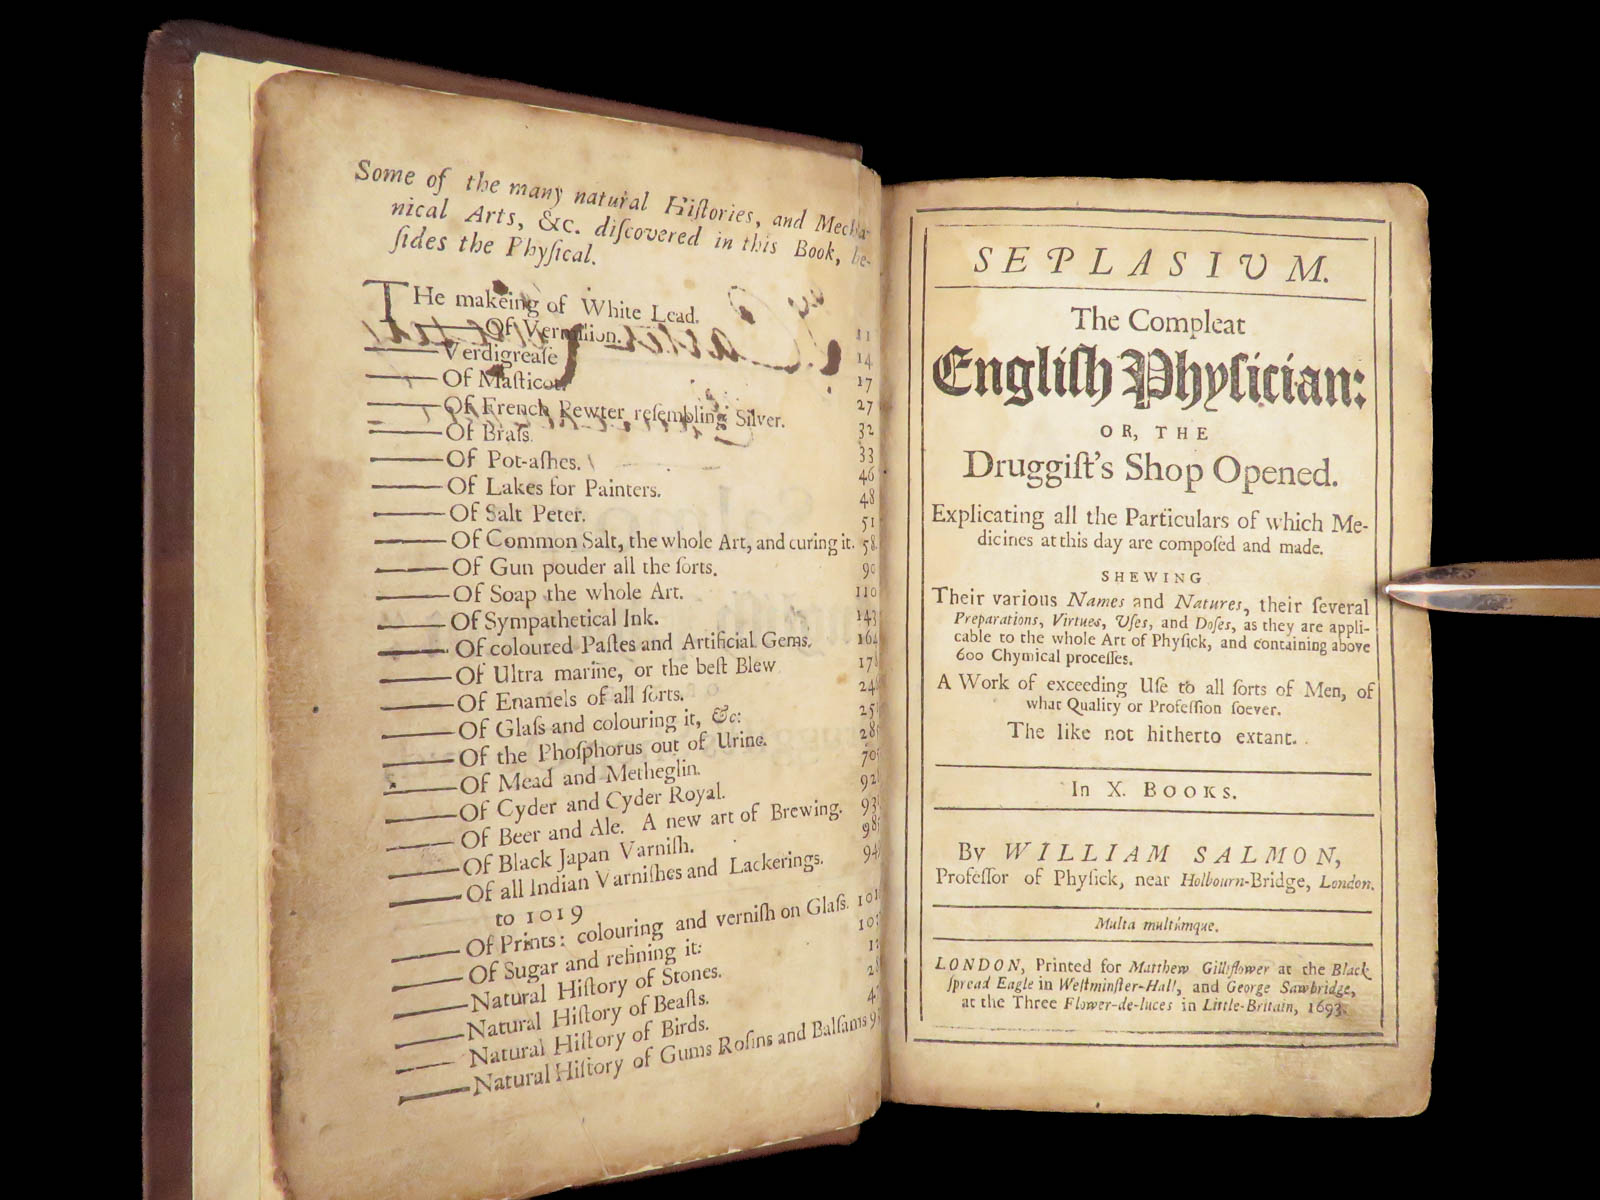 Some of the many natural Hiſtories, and Mecha-
nical Arts, &c. diſcovered in this Book, be-
ſides the Phyſical.
THe makeing of White Lead. 11
Of Vermilion. 14
Verdigreaſe 17
Of Maſticot. 27
Of French Pewter, reſembling Silver. 32
Of Braſs. 33
Of Pot-aſhes. 46
Of Lakes for Painters. 48
Of Salt Peter. 51
Of Common Salt, the whole Art, and curing it. 58
Of Gun pouder all the ſorts. 90
Of Soap the whole Art. 110
Of Sympathetical Ink. 143
Of coloured Paſtes and Artificial Gems. 164
Of Ultra marine, or the beſt Blew
Of Enamels of all ſorts.
Of Glaſs and colouring it, &c:
Of the Phoſphorus out of Urine.
Of Mead and Metheglin.
Of Cyder and Cyder Royal.
Of Beer and Ale. A new art of Brewing.
Of Black Japan Varniſh.
Of all Indian Varniſhes and Lackerings.
to 1019
Of Prints: colouring and verniſh on Glaſs.
Of Sugar and refining it:
Natural Hiſtory of Stones.
Natural Hiſtory of Beaſts.
Natural Hiſtory of Birds.
Natural Hiſtory of Gums Roſins and Balſams
SEPLASIUM.
The Compleat
Engliſh Phyſician:
OR, THE
Druggiſt's Shop Opened.
Explicating all the Particulars of which Me-
dicines at this day are compoſed and made.
SHEWING
Their various Names and Natures, their ſeveral
Preparations, Virtues, Uſes, and Doſes, as they are appli-
cable to the whole Art of Phyſick, and containing above
600 Chymical proceſſes.
A Work of exceeding Uſe to all ſorts of Men, of
what Quality or Profeſſion ſoever.
The like not hitherto extant.
In X. BOOKS.
By WILLIAM SALMON,
Profeſſor of Phyſick, near Holbourn-Bridge, London.
Multa multúmque.
LONDON, Printed for Matthew Gilliflower at the Black
ſpread Eagle in Weſtminſter-Hall, and George Sawbridge,
at the Three Flower-de-luces in Little-Britain, 1693.